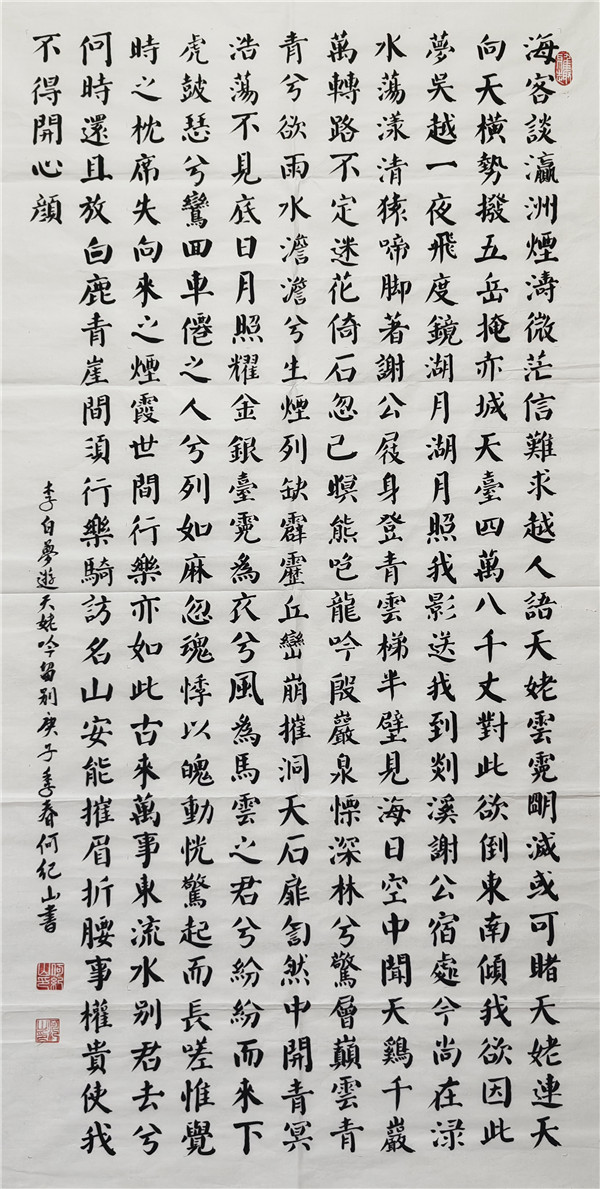 海客談瀛洲煙濤微茫信難求越人語天姥雲霓明滅或可睹天姥連天
向天橫勢撥五岳掩赤城天臺四萬八千丈對此欲倒東南傾我欲因此
夢吳越一夜飛度鏡湖月湖月照我影送我到剡溪謝公宿處今尚在淥
水蕩漾清猿啼脚著謝公屐身登青雲梯半壁見海日空中聞天鷄千巖
萬轉路不定迷花倚石忽已暝熊咆龍吟殷巖泉慄深林兮驚層巔雲青
青兮欲雨水澹澹兮生煙列缺霹靂丘巒崩摧洞天石扉訇然中開青冥
浩蕩不見底日月照耀金銀臺霓為衣兮風為馬雲之君兮紛紛而來下
虎鼓瑟兮鸞回車僊之人兮列如麻忽魂悸以魄動恍驚起而長嗟惟覺
時之枕席失向來之煙霞世間行樂亦如此古來萬事東流水別君去兮
何時還且放白鹿青崖間須行樂騎訪名山安能摧眉折腰事權貴使我
不得開心顏
李白夢遊天姥吟留別庚子季春何紀山書